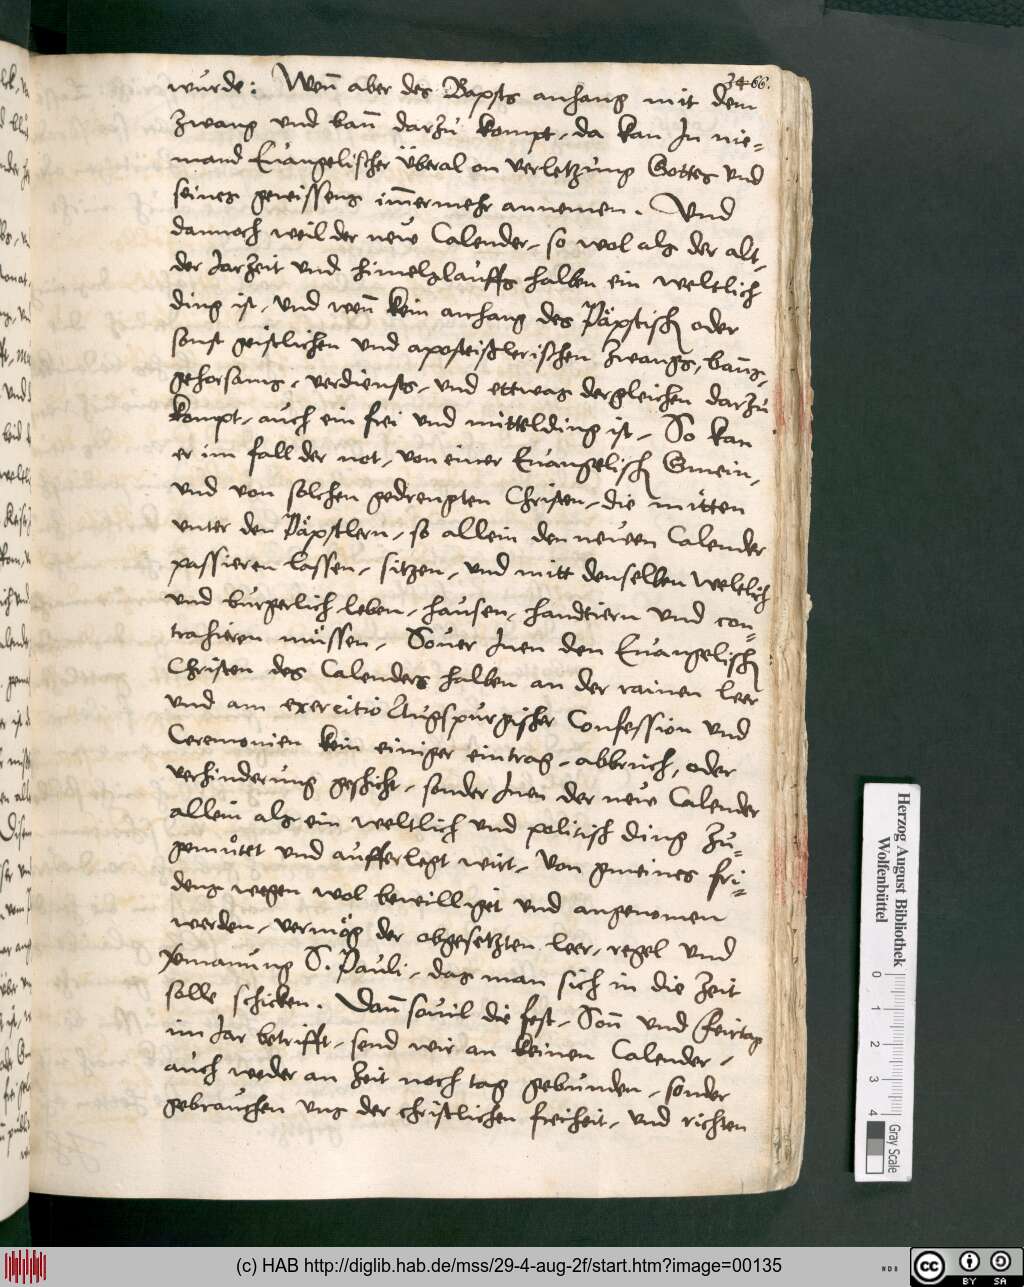 3466.
wurde: Weñ aber des Bapsts anhang mit dem
Zwang und bañ darzu kompt, da kan In nie=
mand Euangelischer überal on verletzung Gottes und
seines gewissens im̄ermehr annemen. Und
dannoch weil der new Calender, so wol als der alt,
der Jarzeit und himelslauffs halben ein weltlich
ding ist, und weñ kein anhang des Päpstisch oder
sonst geistlichen und apostitzlerischen zwangs, bañs,
gehorsams, verdiensts, und ettwas dergleichen darzu
kompt, auch ein frei und mittelding ist, So kan
er im fall der not, von einer Euangelisch Gmein,
und von solchen gedrengten Christen, die mitten
unter den Päpstlern, so allein den newen Calender
passieren lassen, sitzen, und mitt denselben weltlich
und burgerlich leben, hausen, handtiern und con=
trahieren müssen, Souer Inen den Euangelisch
Christen des Calenders halben an der rainen leer
und am exercitio Augspurgischer Confession und
Ceremonien kein einiger eintrag, abbruch, oder
verhinderung geschicht, sonder Inen der new Calender
allein als ein weltlich und politisch ding zu=
gemůtet und aufferlegt wirt, von gmeines fri=
dens wegen wol bewilliget und angenomen
werden, vermög der obgesetzten leer, regel und
vermanung S. Pauli, das man sich in die Zeit
solle schicken. Dañ souil die fest, Soñ und Feirtag
im Jar betrifft, send wir an keinen Calender,
auch weder an Zeit noch tag gebunden, sonder
gebrauchen uns der christlichen freiheit, und richten
Herzog August Bibliothek
Wolfenbüttel
0 1 2 3 4
Gray Scale
(c) HAB http://diglib.hab.de/mss/29-4-aug-2f/start.htm?image=00135
cc BY SA